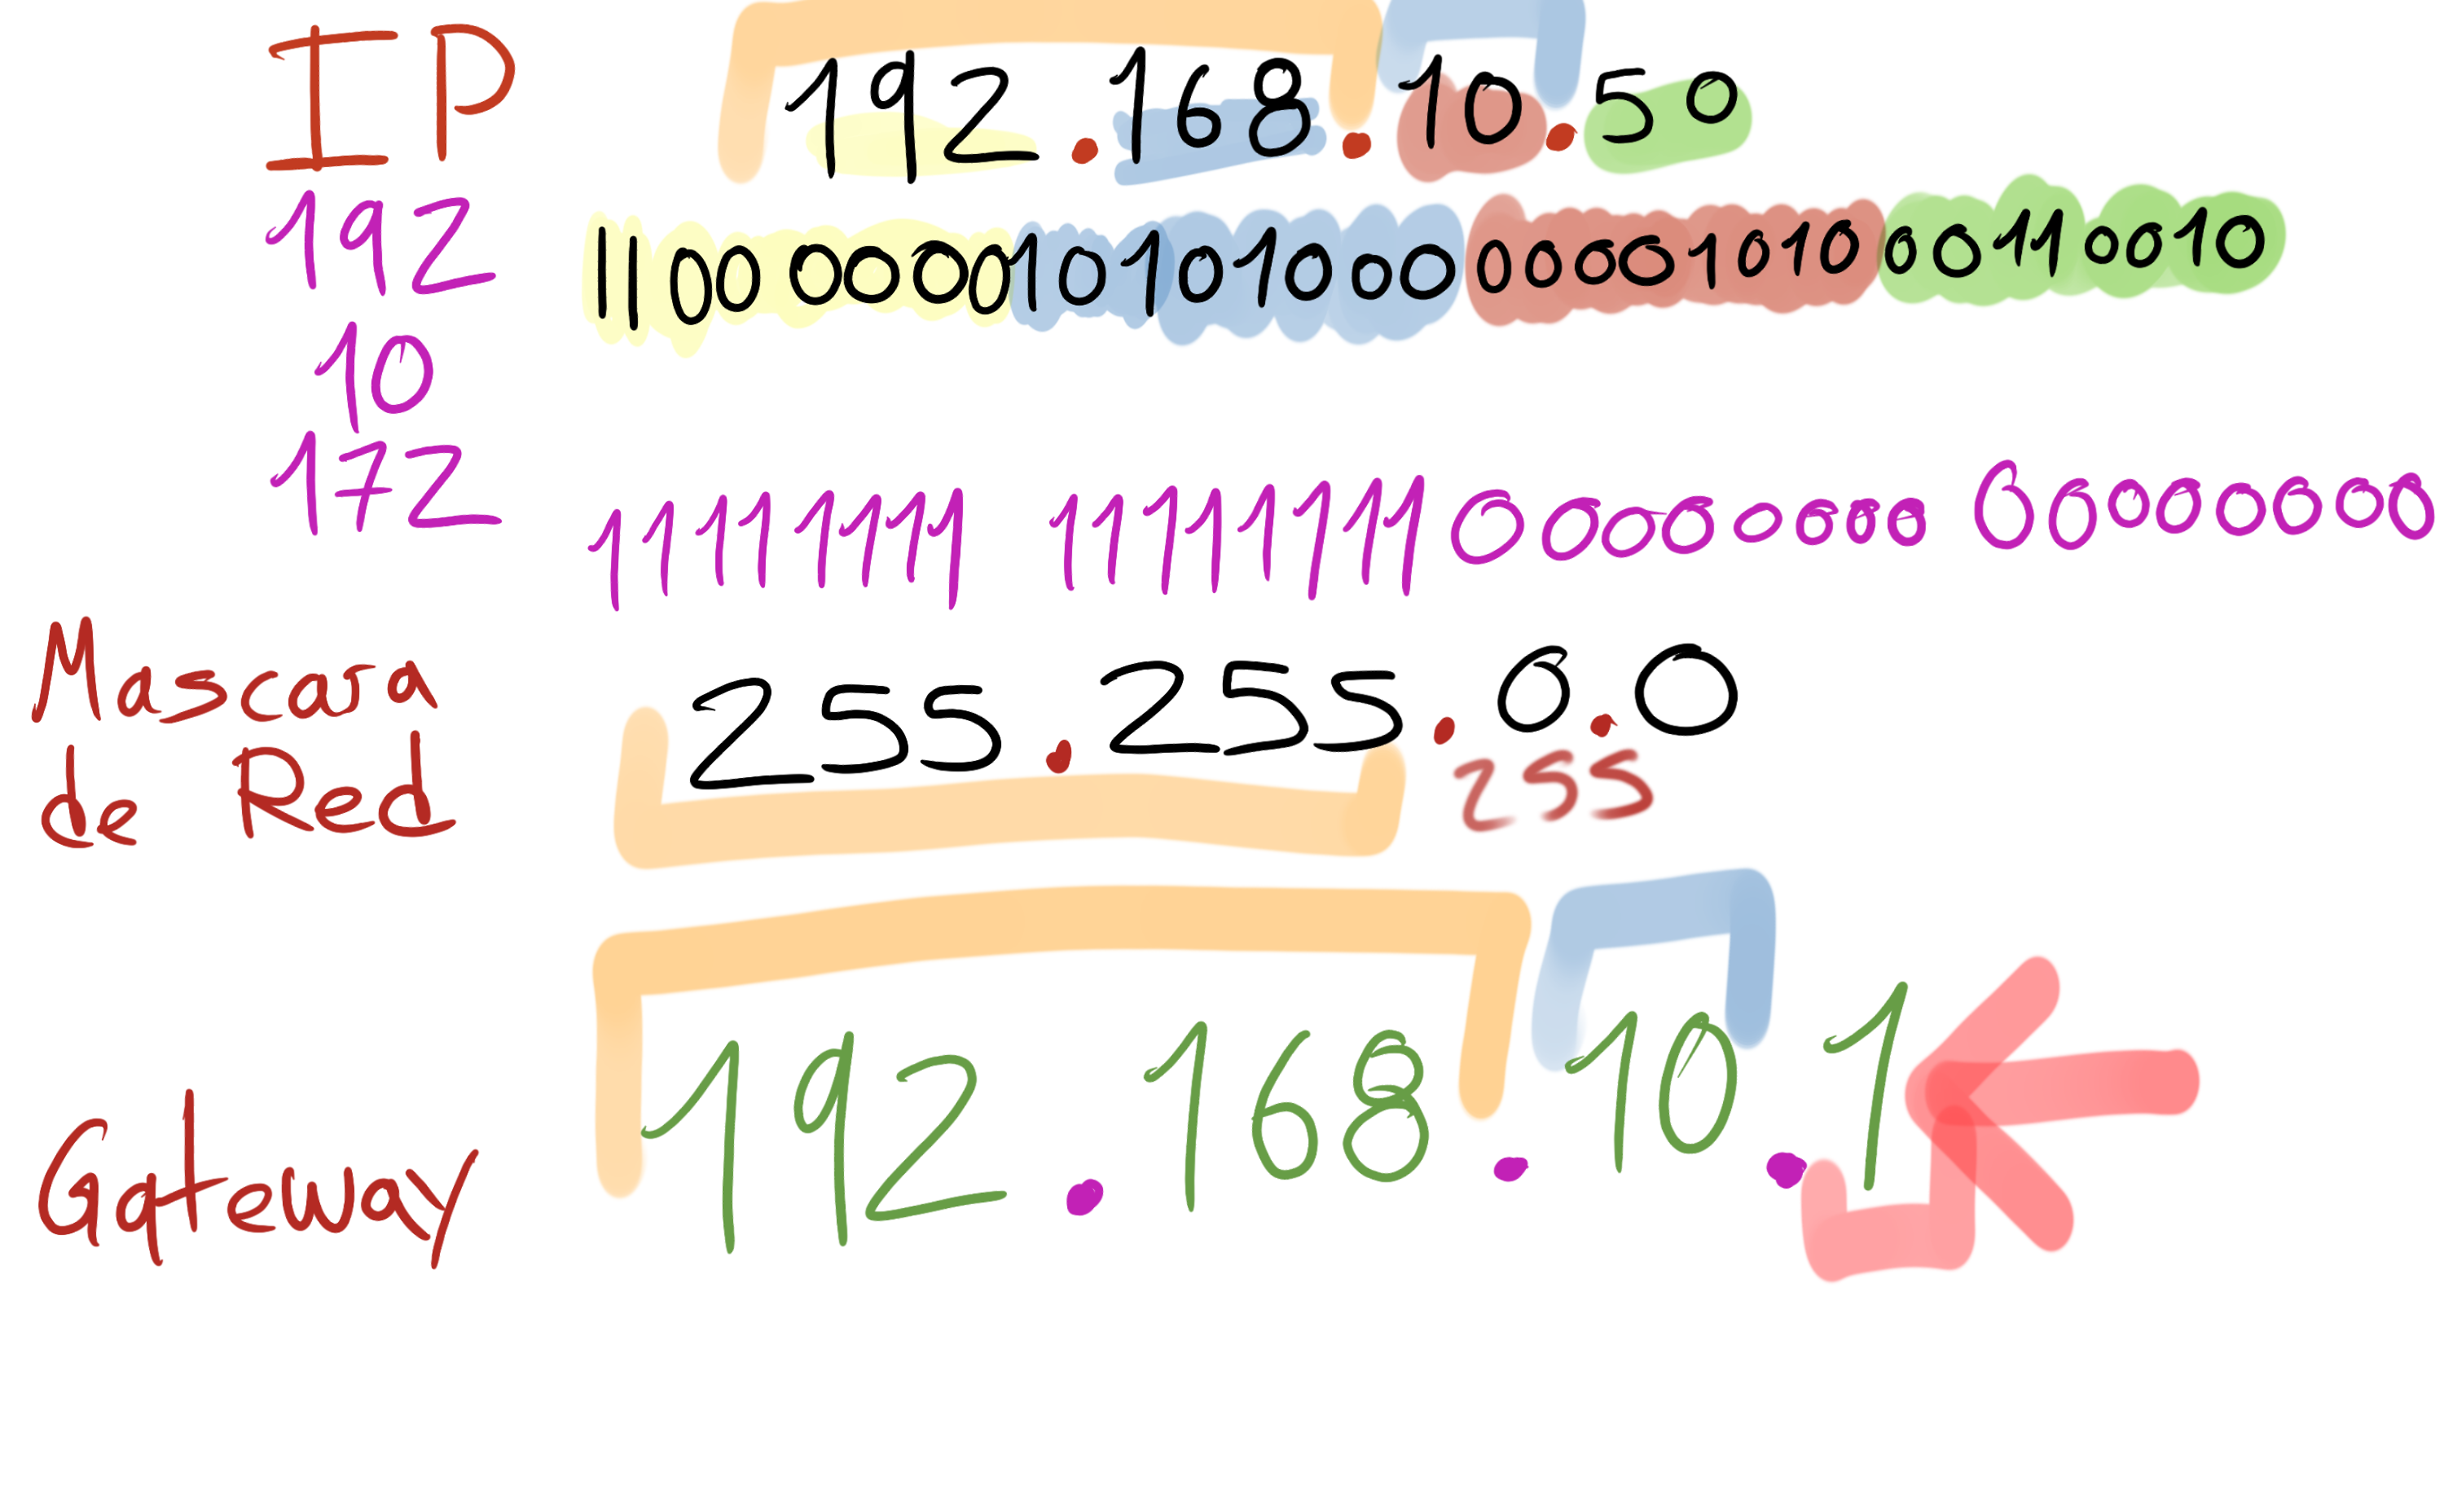 IP 192.168.10.50
192 11000000101010000000101000110010
10
172
11111111 1111111100000000 00000000
Mascara 255.255.0.0
de Red 255
Gateway 192.168.10.1